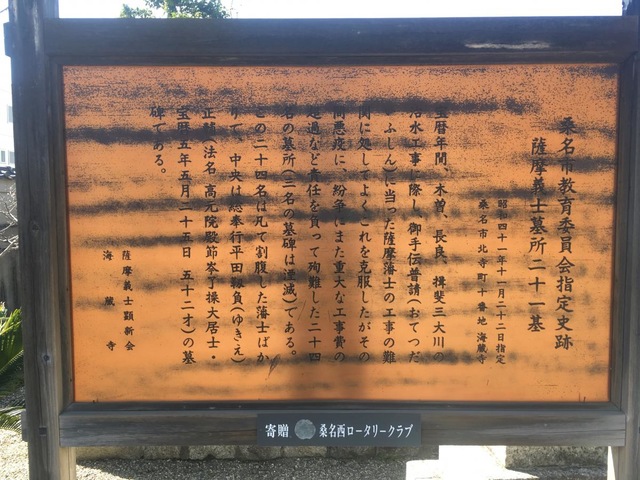 桑名市教育委員会指定史跡
薩摩義士墓所二十一基
昭和四十一年十一月二十二日指定
桑名市北寺町十番地 海蔵寺
宝暦年間、木曽、長良、揖斐三大川の
治水工事に際し、御手伝普請(おてつだ
い ふしん)に当った薩摩藩士の工事の難
関に処してよくこれを克服したがその
間悪疫に、紛争にまた重大な工事費の
超過など責任を負って殉難した二十四
名の墓所(三名の墓碑は湮滅)である。
この二十四名は凡て割腹した藩士ばか
りで、中央は総奉行平田靱負(ゆきえ)
正輔(法名 高元院殿節岑了操大居士・
宝暦五年五月二十五日 五十二才)の墓
碑である。
薩摩義士顕新会
海蔵寺
寄贈 桑名西ロータリークラブ